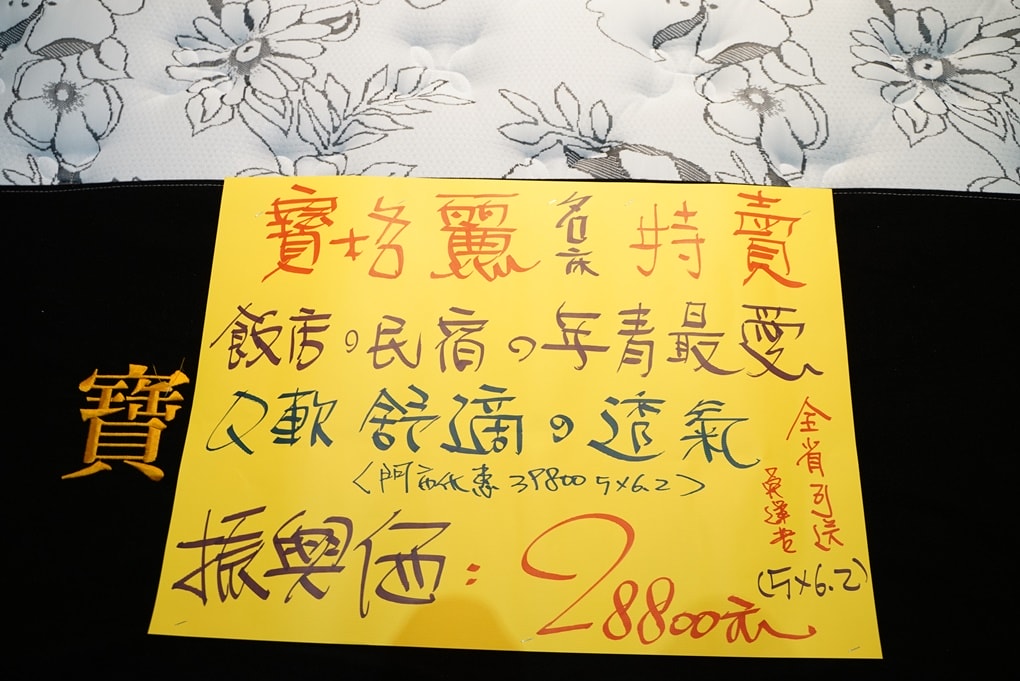 寶格麗名床特賣
飯店。民宿。年青最愛
Q軟舒適。透氣
39800 5×6.2)
全省可送
免運費
振興価:28800元
(5×6.2)
寶